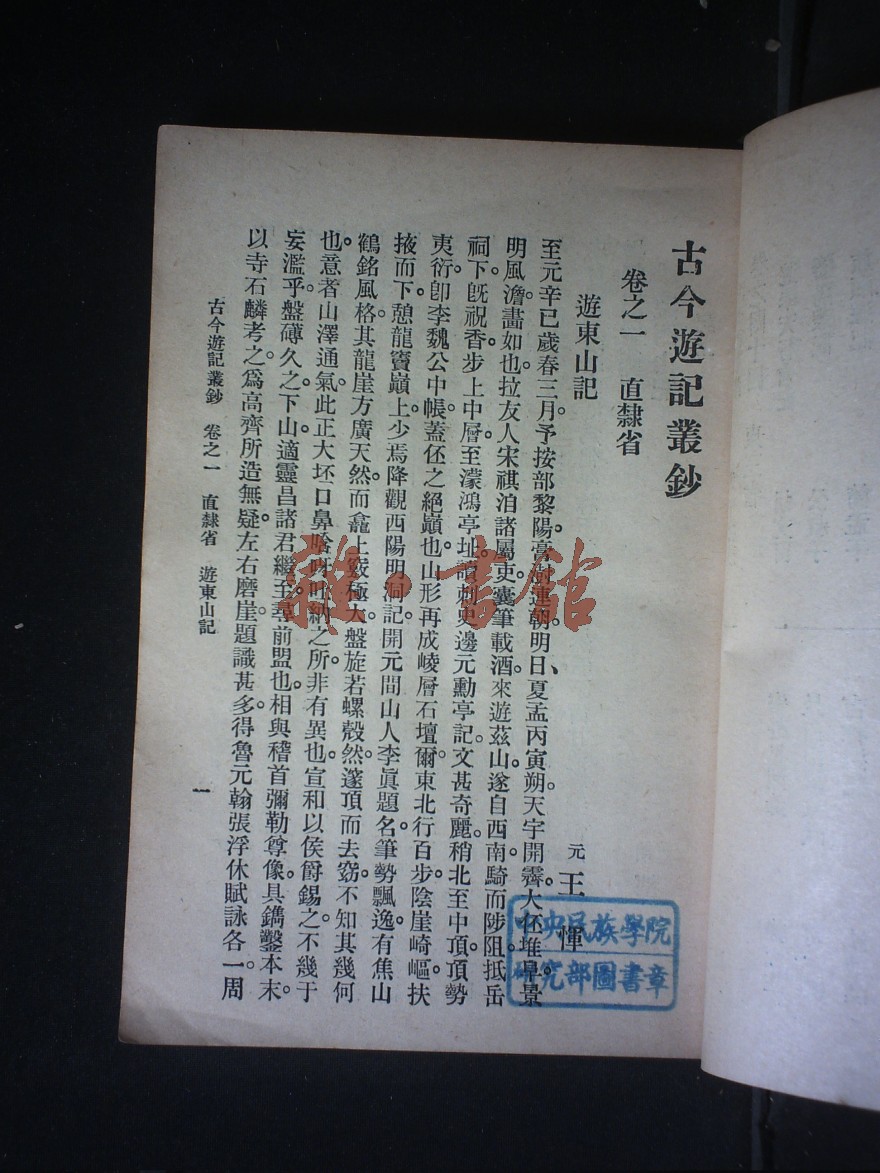 古今遊記叢鈔
卷之一 直隸省
遊東山記
元 王 惲
至元辛已歲春三月。予按部黎陽。膏澍連朝。明日、夏孟丙寅朔。天宇開霽。大伾堆阜。景
明風澹。畫如也。拉友人宋祺洎諸屬吏。囊筆載酒。來遊茲山。遂自西南。騎而陟阻。抵岳
祠下。旣祝香。步上中層。至濛鴻亭址。讀刺史邊元勳亭記。文甚奇麗。稍北至中頂。頂勢
夷衍。卽李魏公中帳。蓋伾之絕巔也。山形再成。崚層石壇爾。東北行百步。陰崖崎嶇。扶
掖而下。憩龍竇巔上。少焉。降觀西陽明洞。記開元間山人李眞題名。筆勢飄逸。有焦山
鶴銘風格。其龍崖方廣天然。而龕上竅極大。盤旋若螺殼然。邃頂而去窈。不知其幾何
也。意者山澤通氣。此正大坯口鼻唅呀吐納之所。非有異也。宣和以侯爵錫之。不幾于
妄濫乎。盤礴久之。下山。適靈昌諸君繼至。尋前盟也。相與稽首彌勒尊像。具鐫鑿本末。
以寺石麟考之。爲高齊所造無疑。左右磨崖。題識甚多。得魯元翰張浮休賦詠各一。周
古今遊記叢鈔 卷之一 直隸省 遊東山記
一
中央民族學院
研究部圖書章
雜·書館